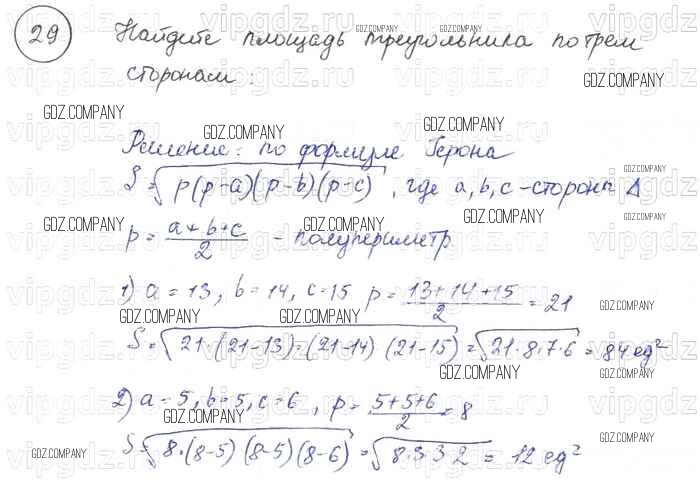 29 Найдите площадь треугольника по трем
сторонам:
Решение: по формуле Герона
S=√p(p-a)(p-b)(p-c), где a,b,c-сторона Δ
p=(a+b+c)/2 - полупериметр
1) a=13, b=14, c=15 p=(13+14+15)/2=21
S=√21·(21-13)·(21-14)(21-15)=√21·8·7·6=84 ед²
2) a-5, b=5, c=6, p=(5+5+6)/2=8
S=√8·(8-5)(8-5)(8-6)=√8·3·3·2=12 ед²